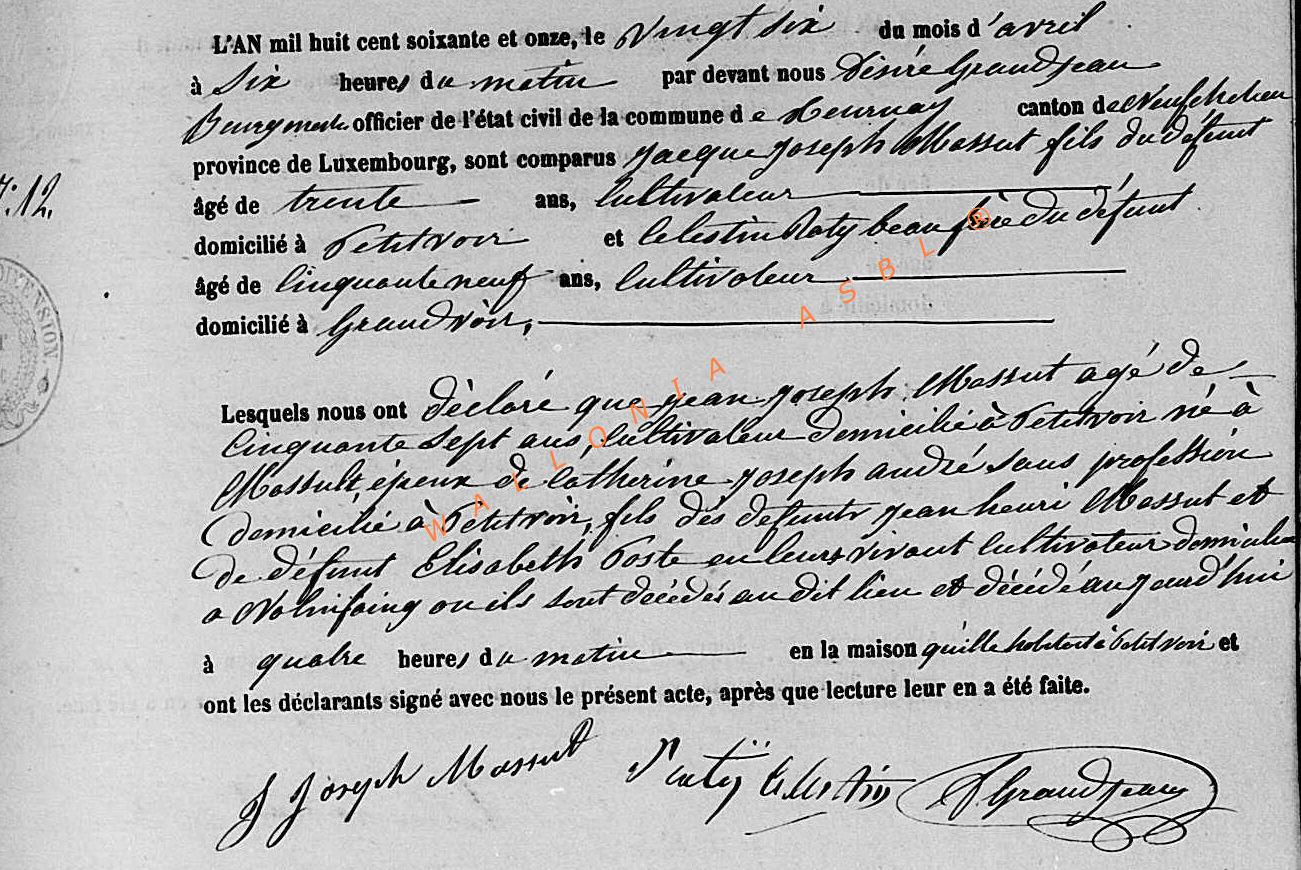 L'AN mil huit cent soixante et onze, le vingt six du mois d'avril
à six heures du matin par devant nous Désiré Grandjean
Bourgmestre officier de l'état civil de la commune de Tournay canton de Neufchateau
province de Luxembourg, sont comparus Jacque Joseph Massut fils du défunt
N°. 12.
âgé de trente ans, cultivateur
domicilié à Petitvoir et Celestin Roty beau frère du défunt
âgé de cinquante neuf ans, cultivateur
domicilié à Grandvoir,
Lesquels nous ont déclaré que jean joseph Massut agé de
cinquante sept ans, cultivateur domicilié à Petitvoir né à
Massul, épeux de Catherine joseph andré sans profession
domicilié à Petitvoir, fils des defunts jean henri Massut et
de défunt Elisabeth Poste en leurs vivant cultivateur domicilié
a Volaifaing ou ils sont décédés au dit lieu et décédé aujourd'hui
à quatre heures du matin en la maison qu'ille habitait à Petitvoir et
ont les déclarants signé avec nous le présent acte, après que lecture leur en a été faite.
J Joseph Massut Celestin D Grandjean
WALLONIA ASBL ®